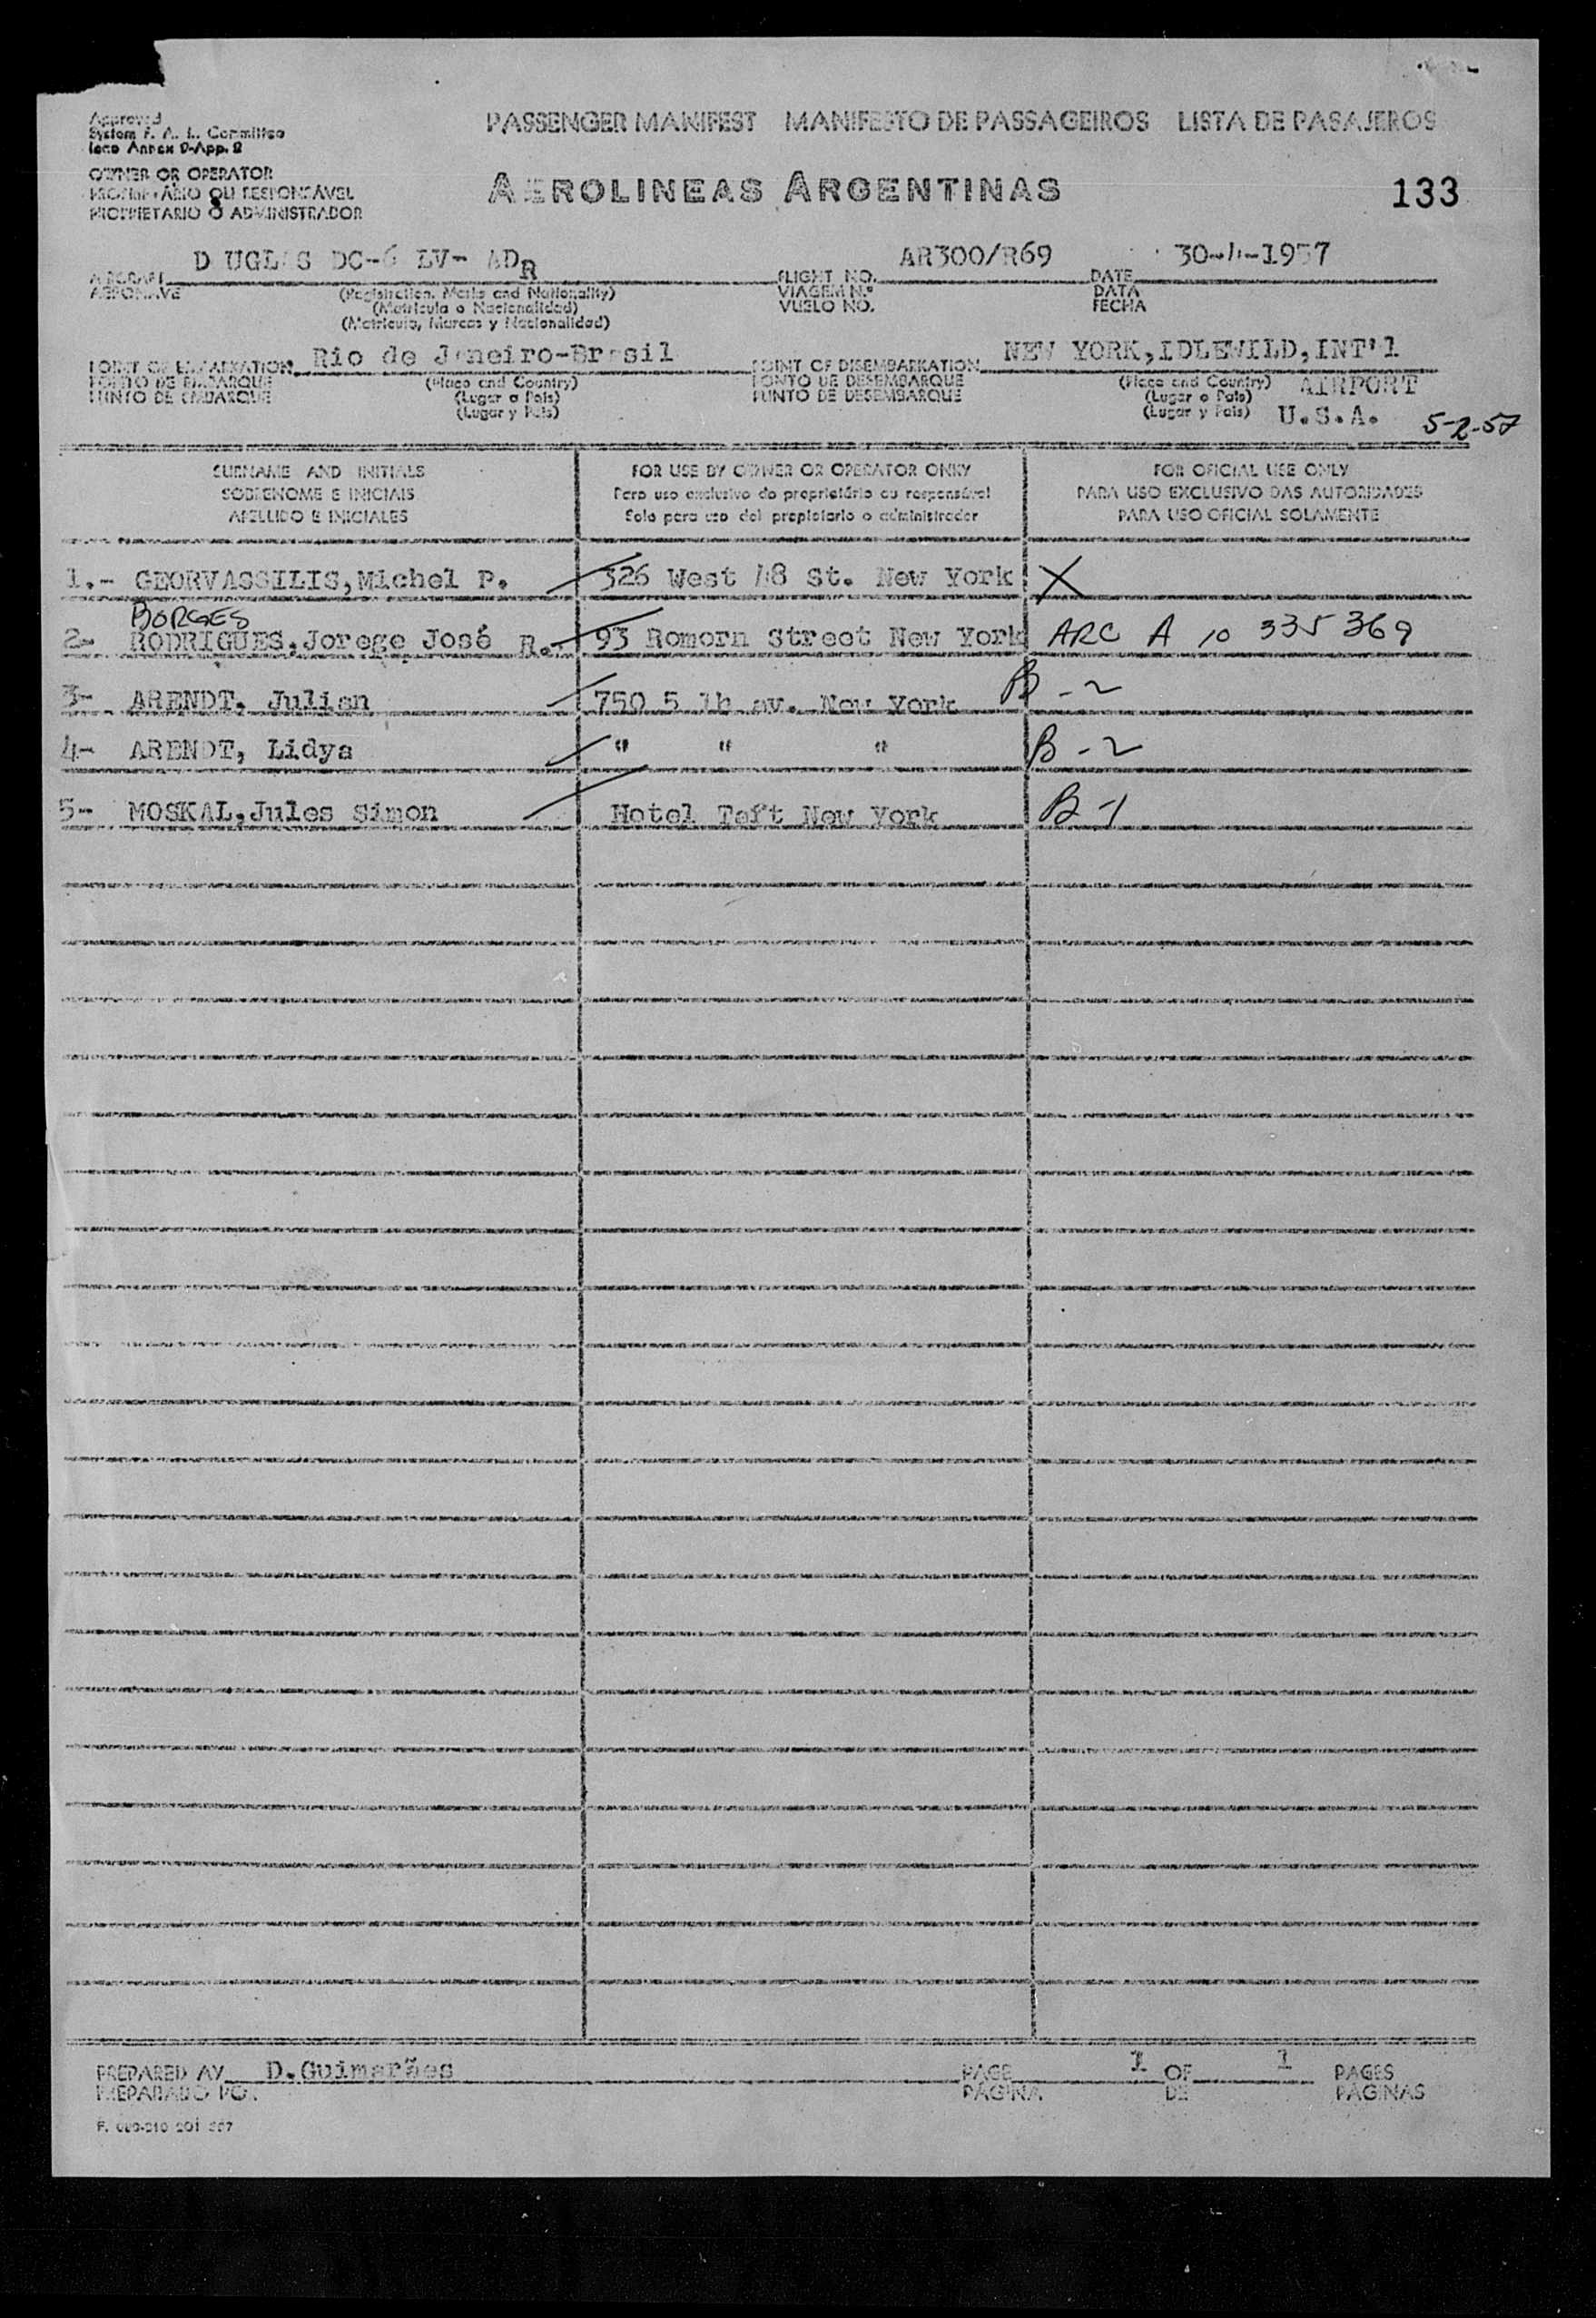 Approved
System F. A. L. Committee
Icao Annex 9-App. 2
PASSENGER MANIFEST MANIFESTO DE PASSAGEIROS LISTA DE PASAJEROS
OWNER OR OPERATOR
PROPRIETÁRIO OU RESPONSÁVEL
PROPIETARIO O ADMINISTRADOR
AEROLINEAS ARGENTINAS
133
AIRCRAFT D UGL S DC-6 LV- ADR
AERONAVE
(Registration, Marks and Nationality)
(Matricula o Nacionalidad)
(Matricula, Marcas y Nacionalidad)
FLIGHT NO. AR300/R69
VIAGEM N.º
VUELO NO.
DATE 30- -1957
DATA
FECHA
POINT OF EMBARKATION Rio de Janeiro-Brasil
PONTO DE EMBARQUE
PUNTO DE EMBARQUE
(Place and Country)
(Lugar o País)
(Lugar y País)
POINT OF DISEMBARKATION NEW YORK,IDLEWILD,INT'l
PONTO DE DESEMBARQUE
PUNTO DE DESEMBARQUE
(Place and Country) AIRPORT
(Lugar o País)
(Lugar y País) U.S.A.
5-2-57
SURNAME AND INITIALS
SOBRENOME E INICIAIS
APELLIDO E INICIALES
FOR USE BY OWNER OR OPERATOR ONKY
Para uso exclusivo do proprietário ou responsável
Solo para uso del propietario o administrador
FOR OFICIAL USE ONLY
PARA USO EXCLUSIVO DAS AUTORIDADES
PARA USO OFICIAL SOLAMENTE
1.- GEORVASSILIS,Michel P. 326 West 48 St. New York X
BORGES
2- RODRIGUES,Jorege José R.- 93 Romorn Street New York ARC A 10 335 369
3- ARENDT, Julian 750 5 th av. New York B-2
4- ARENDT, Lidya " " " B-2
5- MOSKAL,Jules Simon Hotel Taft New York B-1
PREPARED AV D.Guimarães
PREPARADO POR
PAGE 1 OF 1 PAGES
PÁGINA DE PÁGINAS